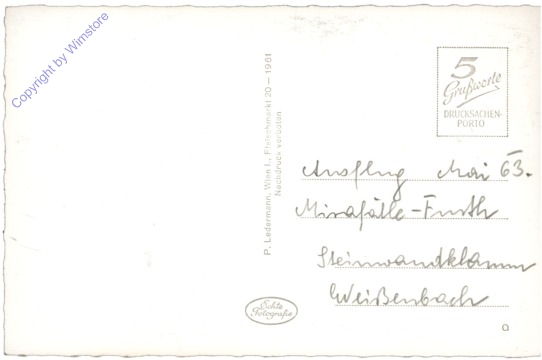 Copyright by Wimstore
P. Ledermann, Wien I., Fleischmarkt 20 — 1961
Nachdruck verboten
5
Grußworte
DRUCKSACHEN-
PORTO
Ausflug Mai 63.
Mirafälle-Furth
Steinwandklamm
Weißenbach
Echte
Fotografie
a